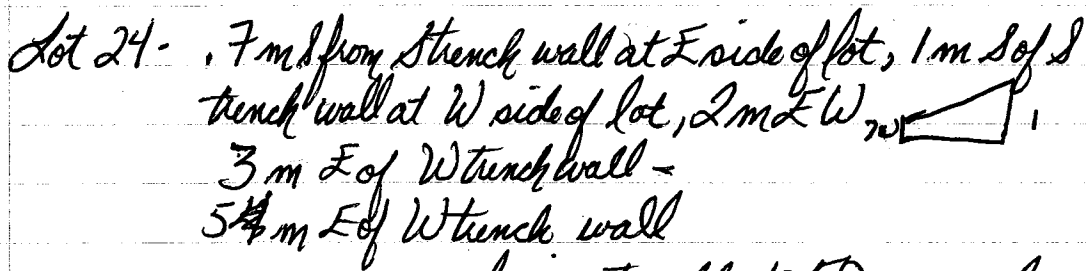 Lot 24 - .7 m S from S trench wall at E side of lot, 1 m S of S
trench wall at W side of lot, 2 m E W 1
3 m E of W trench wall -
5 m E of W trench wall